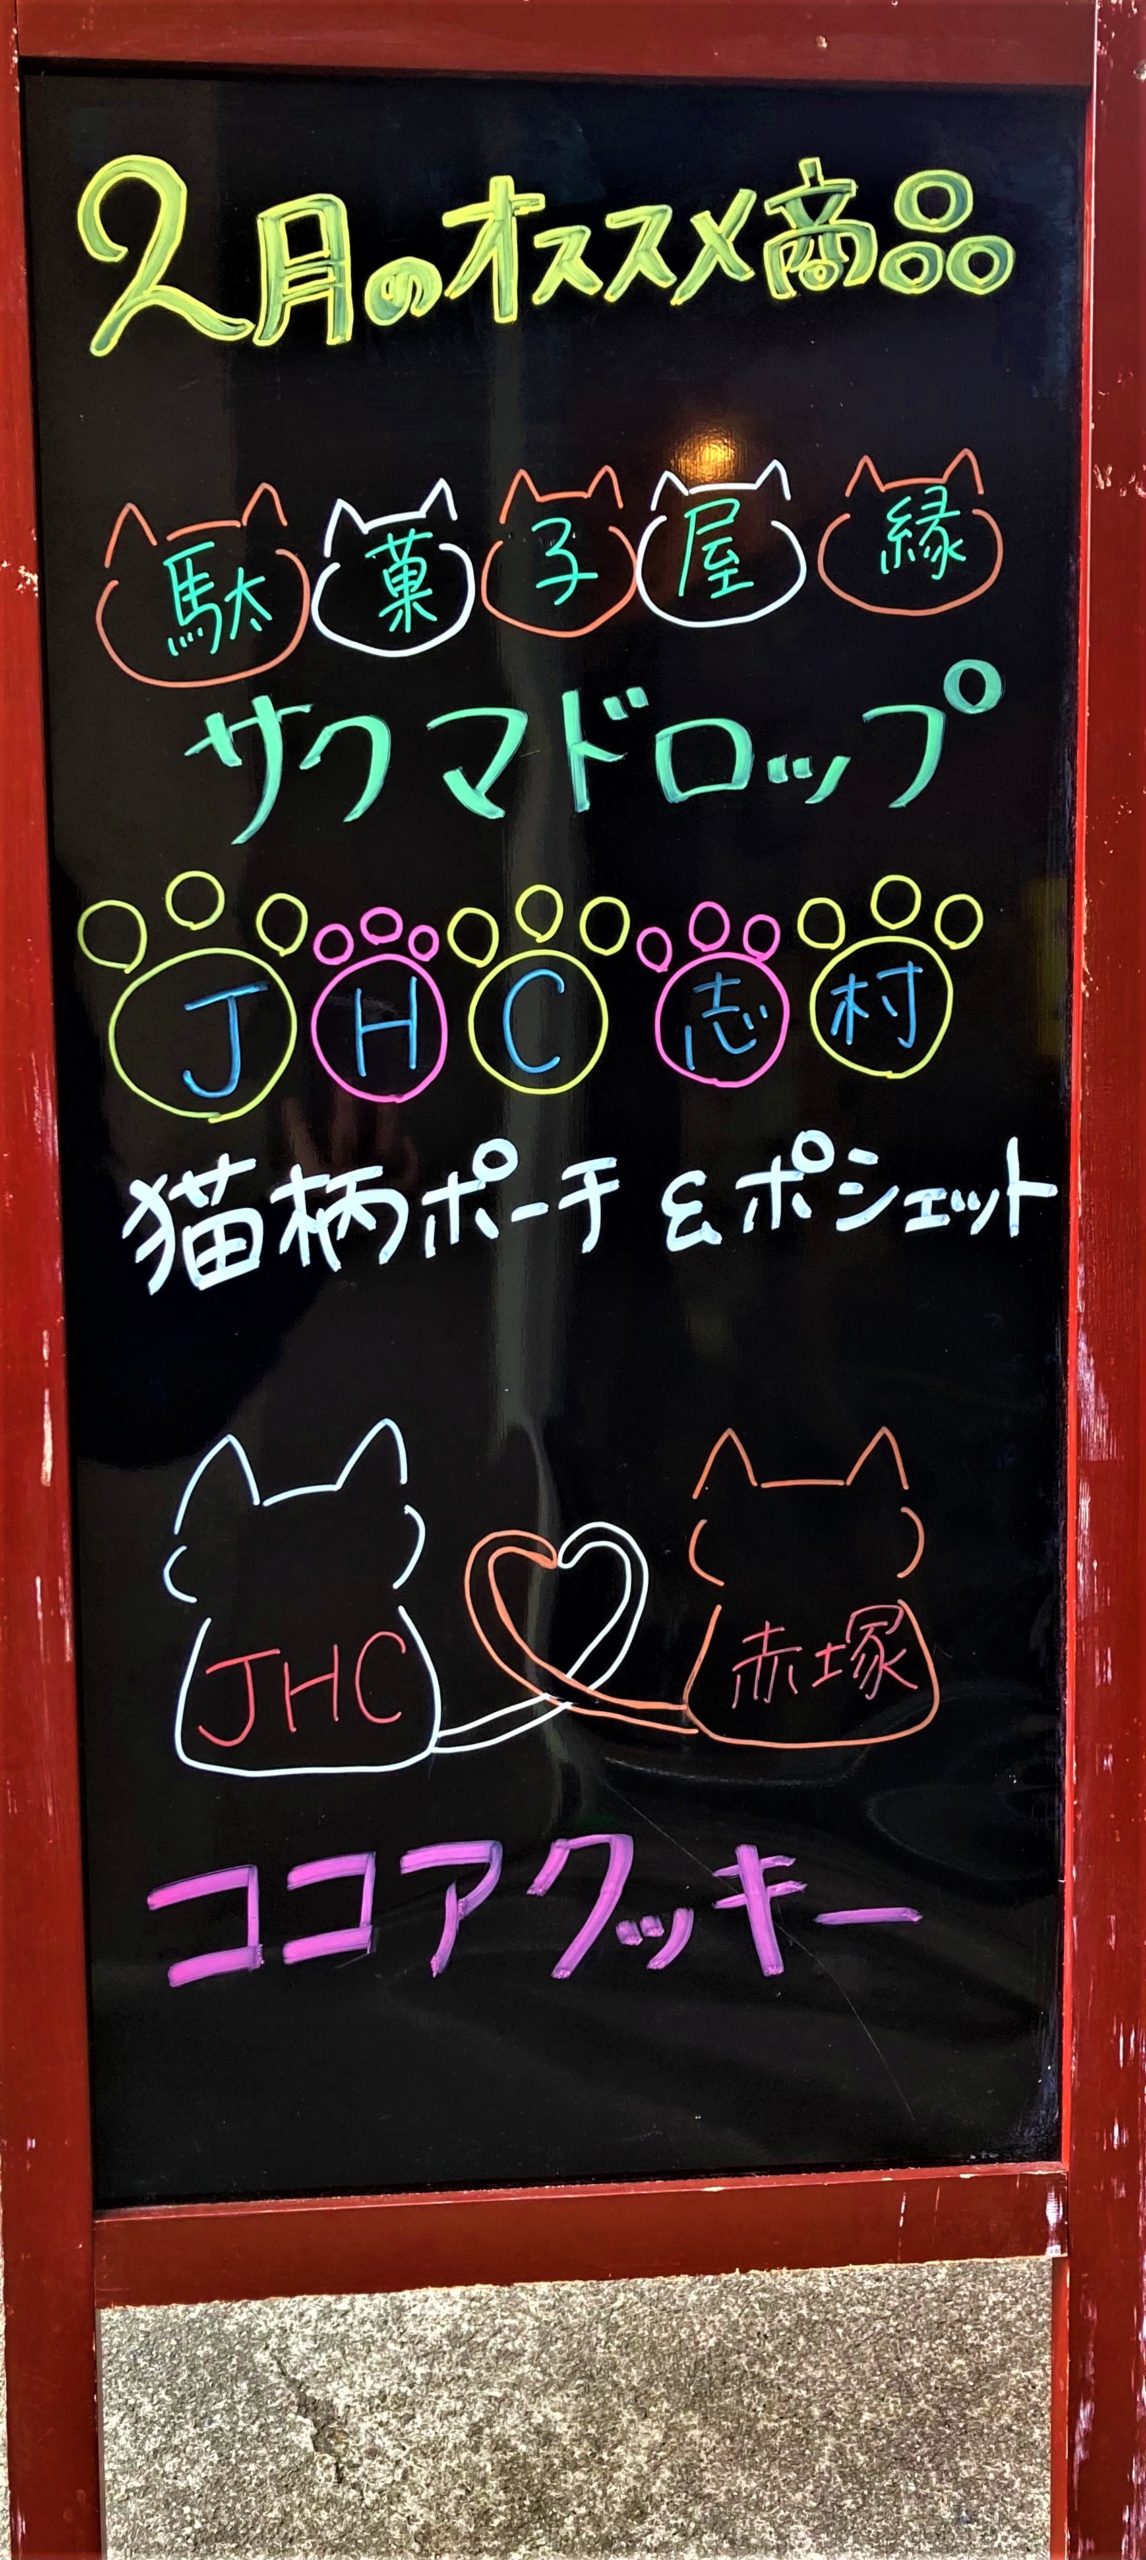 2月のオススメ商品
駄菓子屋縁
サクマドロップ
JHC志村
猫柄ポーチ&ポシェット
JHC 赤塚
ココアクッキー